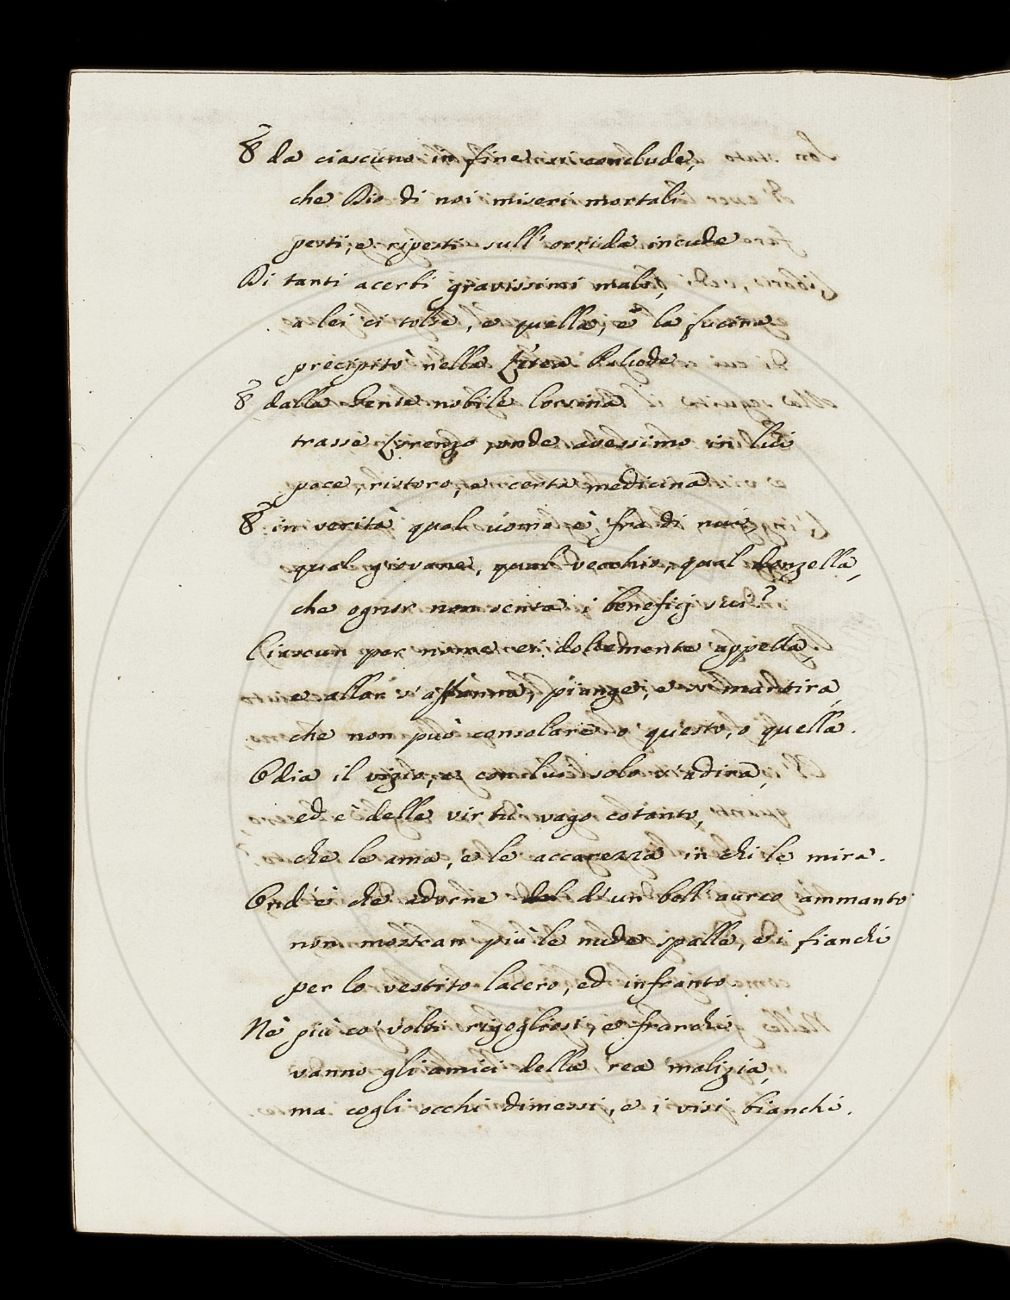 E da ciascuno in fine si conclude,
che Dio di noi miseri mortali
pesti, e ripesti sull'orrida incude
Di tanti acerbi gravissimi mali,
a lei ci tolse, e quella, e la fucina
precipitò nella Letea Palude.
E dalla Gente nobile Corsina
trasse Lorenzo, onde avessimo in lui
pace, ristoro, e certa medicina
E in verità qual uomo è fra di noi,
qual giovane, qual vecchio, qual donzella,
che ognor non senta i benefizj sui?
Ciascun per nome ei dolcemente appella,
e allor s'affanna, piange, e si martira,
che non può consolare o questo, o quella.
Odia il vizio, e con lui solo s'adira,
ed è delle virtù vago cotanto,
che le ama, e le accarezza in chi le mira.
Ond'è che adorne d'un bell'aureo ammanto
non mostran più le nude spalle, ed i fianchi
per lo vestito lacero, ed infranto.
Nè più co' volti rigogliosi, e franchi
vanno gli amici della rea malizia,
ma cogli occhi dimessi, e i visi bianchi.